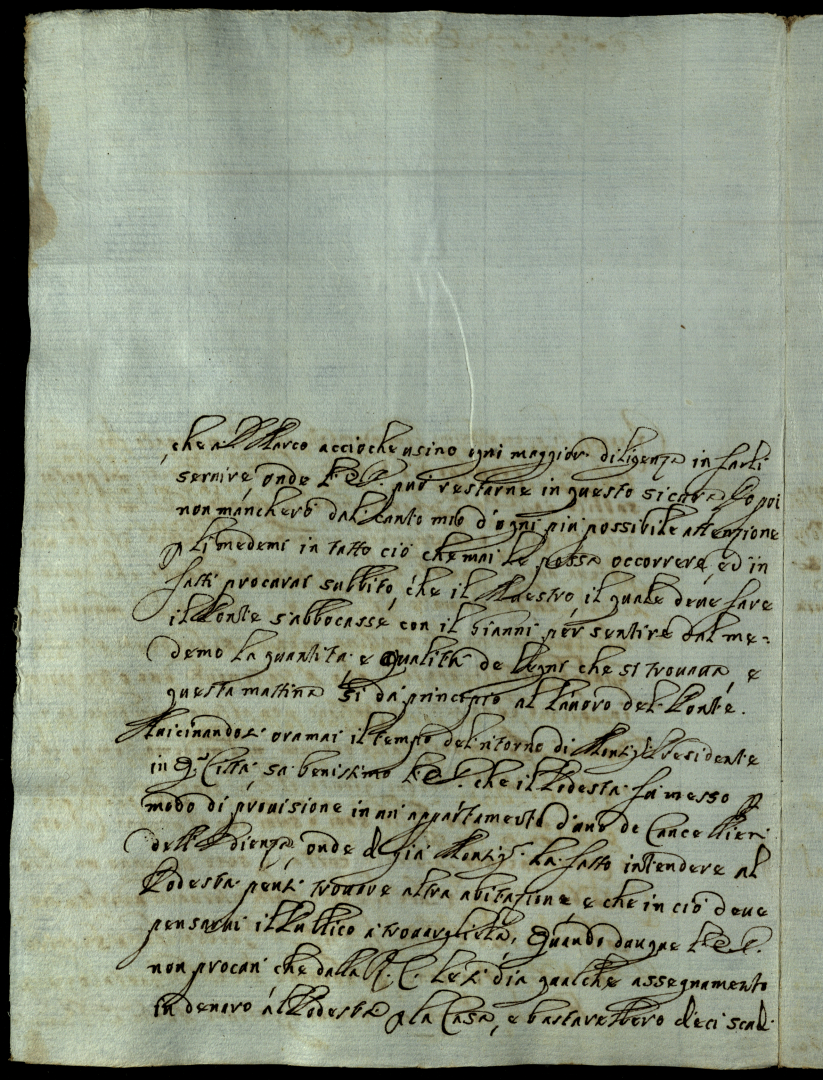 che a D. Marco accioche usino ogni maggior diligenza in farli
servire onde V. E. può restarne in questo sicura Io poi
non mancherò dal canto mio d'ogni più possibile attenzione
p li medemi in tutto ciò che mai le possa occorrere, ed in
fatti procurai subbito, che il Maestro il quale deve fare
il Ponte s'abbocasse con il Gianni per sentire dal me=
demo la quantità e qualità de legni che si trovava, e
questa mattina si dà principio al lavoro del Ponte.
Avicinandosi oramai il tempo del ritorno di Monsig.r Presidente
in q.ta Città, sa benissimo V. E. che il Podestà fù messo p
modo di provisione in un' appartamento d'uno de Cancellieri
dell' Udienza, onde di già Monsig.r ha fatto intendere al
Podestà pensi trovare altra abitazione e che in ciò deve
pensarvi il Publico a trovargliela, Quando dunque V. E.
non procuri che dalla R. C. le si dia qualche assegnamento
in denaro al Podestà p la Casa, e bastarebbero dieci scudi